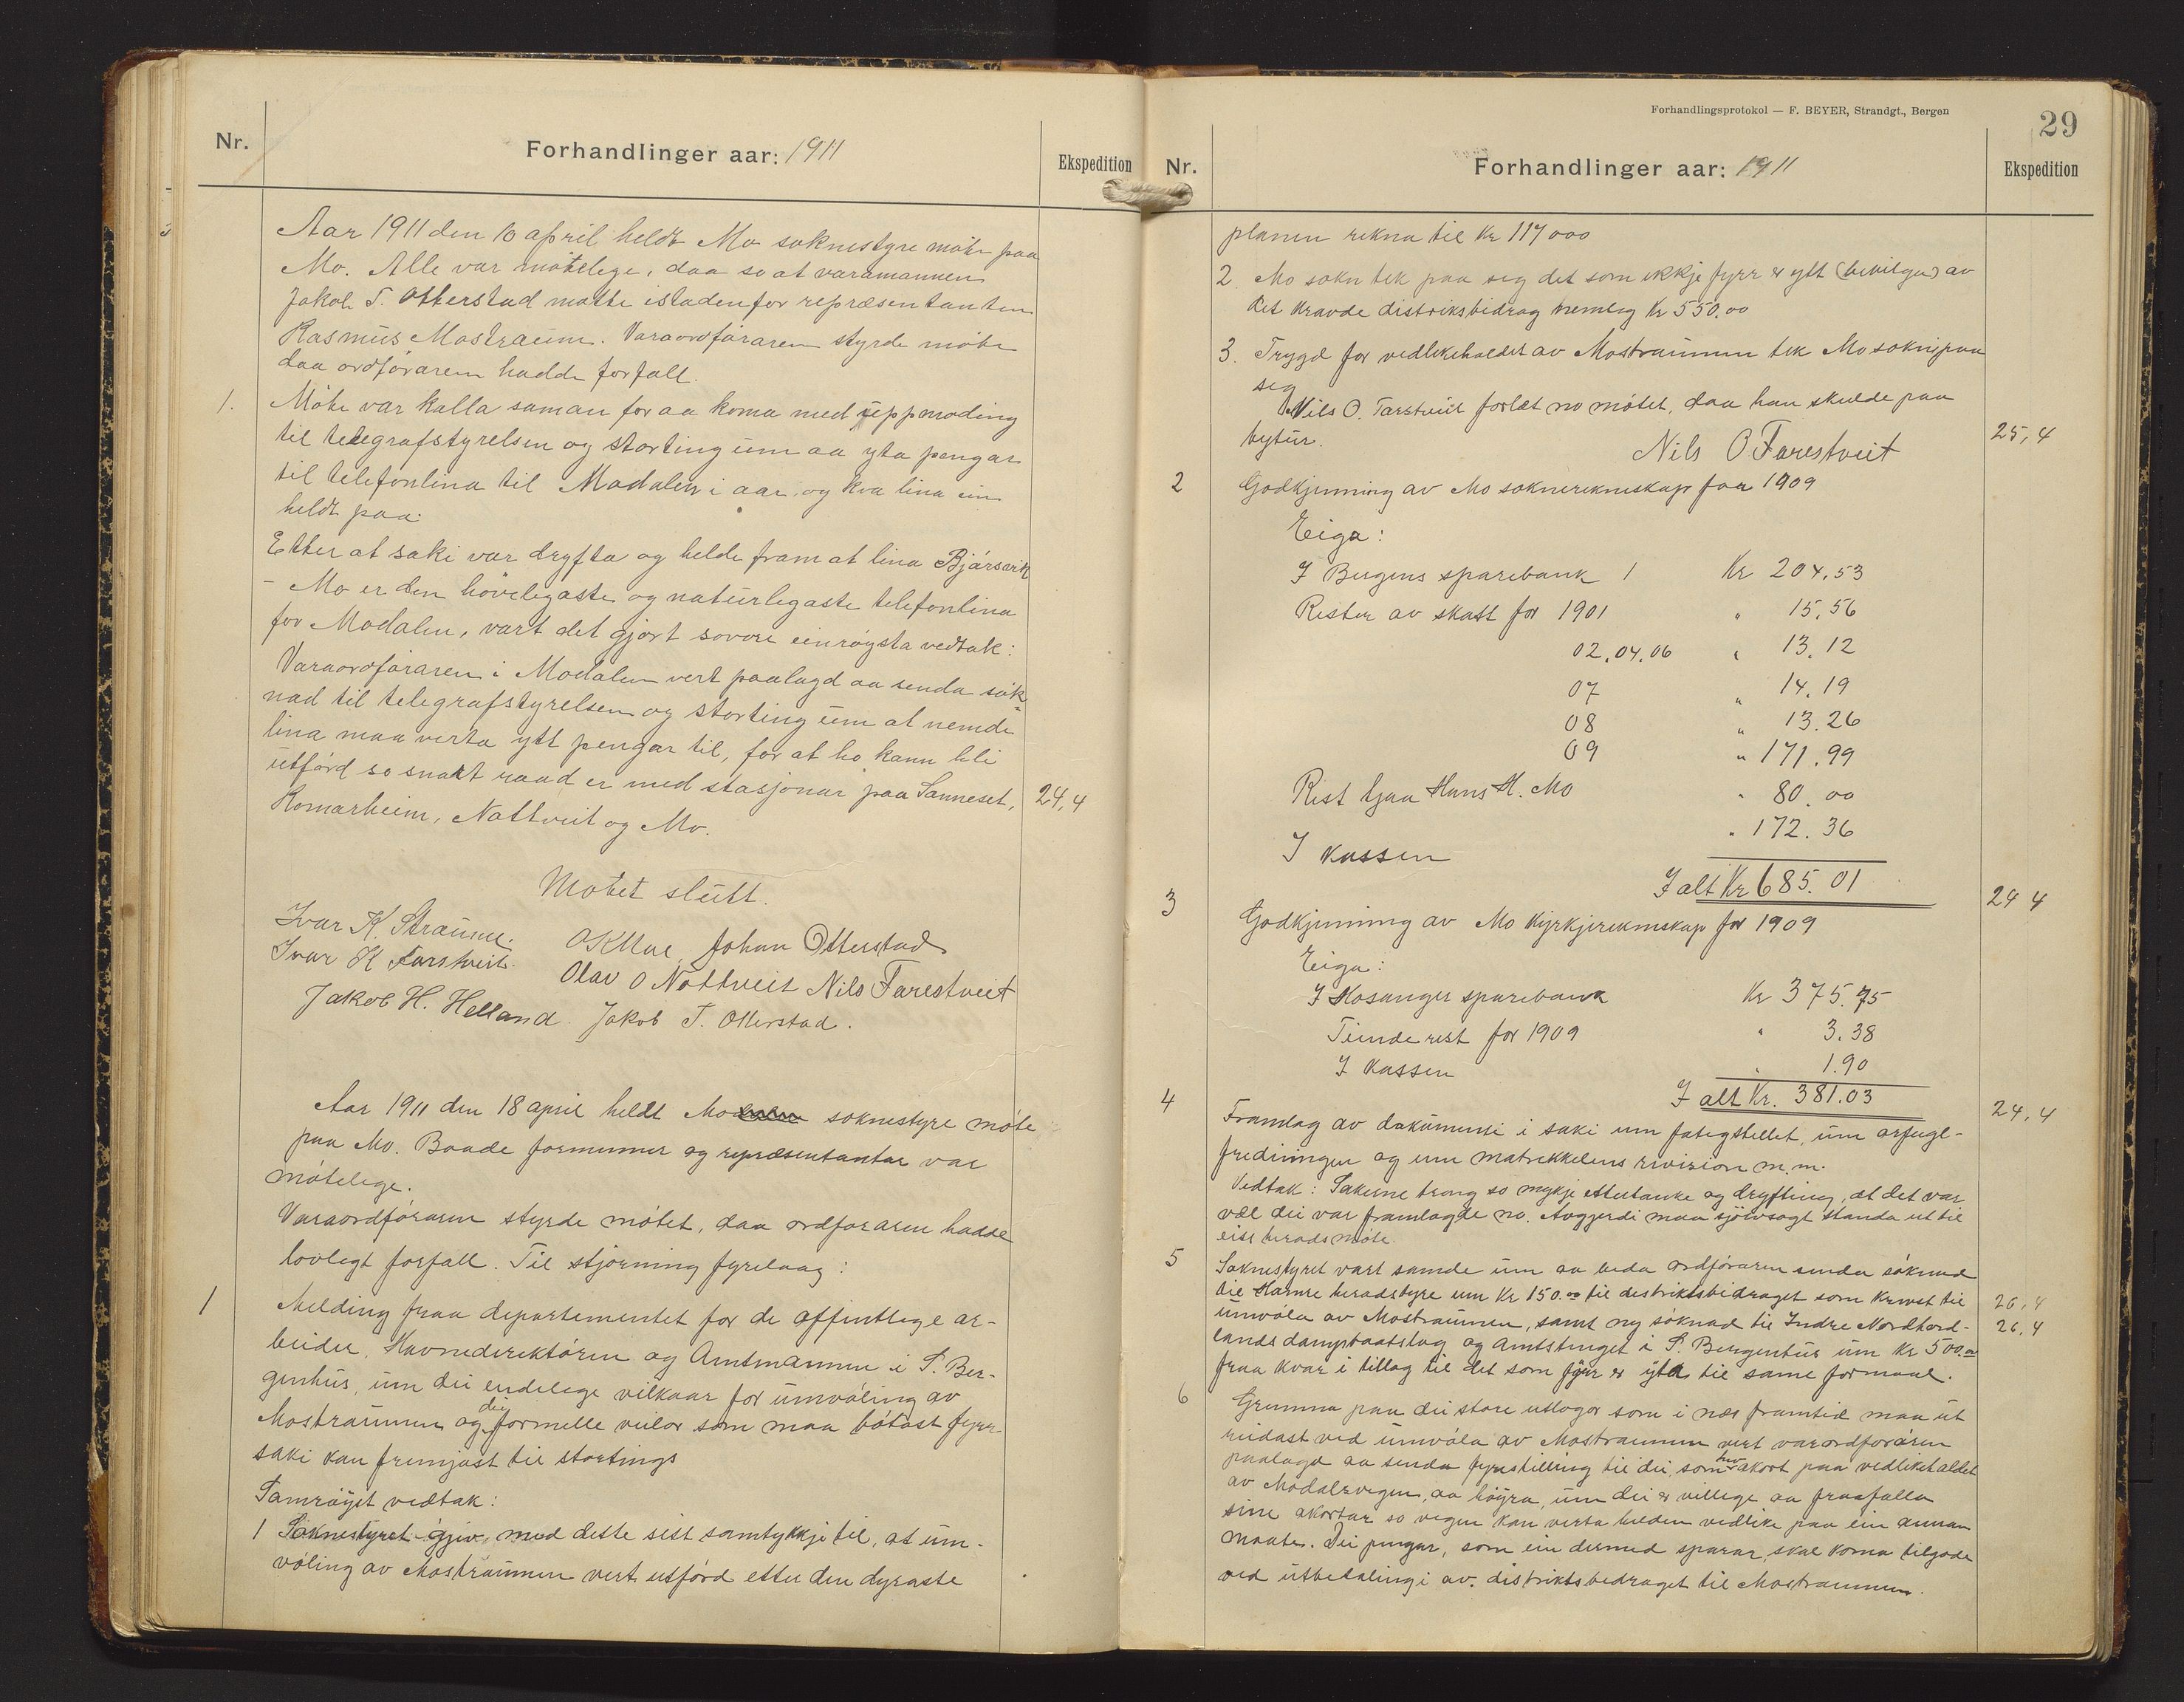 Nr.
Forhandlinger aar: 1911
Ekspedition
Aar 1911 den 10 april heldt Mo soknestyre möte paa
Mo. Alle var mötelege, daa so at varamannen
Jakob T. Otterstad mötte istadenfor repræsentanten
Rasmus Mostraum. Varaordföraren styrde möte
daa ordföraren hadde forfall.
1. Möte var kalla saman for aa koma med uppmoding
til telegrafstyrelsen og storting um aa yta pengar
til telefonlina til Modalen i aar og kva lina ein
heldt paa.
Etter at saki var dryfta og helde fram at lina Bjørsvik
- Mo er den hövelegaste og naturlegaste telefonlina
for Modalen, vart det gjort sovore einröysta vedtak:
Varaordföraren i Modalen vert paalagd aa senda sök-
nad til telegrafstyrelsen og storting um at nemde
lina maa verta ytt pengar til, for at ho kann bli
utförd so snart raad er med stasjonar paa Sanneset,
24,4
Romarheim, Nottveit og Mo.
Mötet slutt.
Ivar K. Straume. OKMoe Johan Otterstad
Ivar K Farstveit. Olav O Nottveit Nils Farestveit
Jakob H. Helland. Jakob T. Otterstad.
Aar 1911 den 18 april heldt Mo soknestyre möte
paa Mo. Baade formenner og repræsentantar var
mötelege.
Varaordföraren styrde mötet, daa ordföraren hadde
lovlegt forfall. Til stjörning fyrelaag:
1 Melding fraa departementet for de offentlege ar-
beider, Havnedirektören og Amtmannen i S. Ber-
genhus, um dei endelege vilkaar for umvöling av
Mostraumen og dei formelle veilor som maa bötast fyrr
saki kan fremjast til stortings
Samröyst vedtak:
1 Soknestyret gjev med dette sitt samtykkje til, at um-
völing av Mostraumen vert utförd etter den dyraste
Forhandlingsprotokol — F. BEYER, Strandgt., Bergen
29
Nr.
Forhandlinger aar: 1911
Ekspedition
planen rekna til Kr 117000
2. Mo sokn tek paa seg det som ikkje fyrr er ytt (bevilga) av
det kravde distriksbidrag nemleg Kr 550.00
3. Trygd for vedlikehaldet av Mostraumen tek Mo sokn paa
seg
Nils O. Farstveit forlet no mötet, daa han skulde paa
bytur.
25,4
Nils O Farestveit
2 Godkjenning av Mo soknerekneskap for 1909
Eiga:
I Bergens sparebank 1 Kr 204.53
Restar av skatt for 1901 " 15.56
02.04.06 " 13.12
07 " 14.19
08 " 13.26
09 " 171.99
Rest hjaa Hans H. Mo " 80.00
I kassen " 172.36
I alt Kr 685.01
24 4
3 Godkjenning av Mo kyrkjerekneskap for 1909
Eiga:
I Hosanger sparebank Kr 375.75
Tiende rest for 1909 " 3.38
I kassen " 1.90
I alt Kr. 381.03
24,4
4 Framlag av dokumenti i saki um fatigstellet, um orfugl-
fredningen og um matrikkelens revision m.m.
Vedtak: Sakerne trong so mykje ettertanke og dryfting, at det var
vel dei var framlagde no. Avgjerdi maa sjölvsagt standa ut til
eitt heradsmöte.
5 Soknestyret vart samde um aa beda ordföraren senda söknad
til Hamre heradstyre um Kr 150.00 til distriktsbidraget som krevst til
26,4
umvöla av Mostraumen, samt ny söknad til Indre Nordhord-
26,4
lands dampbaatslag og Amtstinget i S. Bergenhus um Kr 500.00
fraa kvar i tillag til det som fyrr er yta til same formaal.
6 Grunna paa dei store utlogor som i nær framtid maa ut
reidast ved umvöla av Mostraumen vert varordföraren
paalagd aa senda fyrestilling til dei, som hev akort paa vedlikehaldet
av Modalsvegen, aa höyra, um dei er villege aa fraafalla
sine akortar so vegen kan verta halden vedlike paa ein annan
maate. Dei pengar, som ein dermed sparar, skal koma tilgode
ved utbetalingi av distriktsbedraget til Mostraumen.